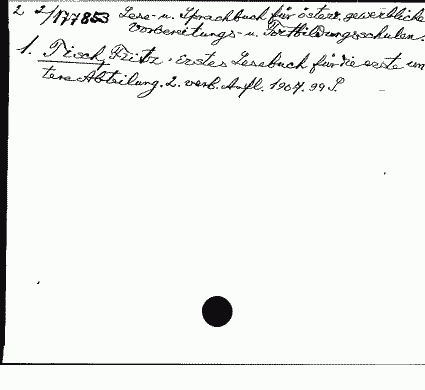 2 2/177853 Lese- u. Sprachbuch für österr. gewerbliche
Vorbereitungs- u. Fortbildungsschulen.
1. Tisch, Fritz. Erstes Lesebuch für die erste un
tere Abteilung. 2. verb. Aufl. 1907. 99 S.